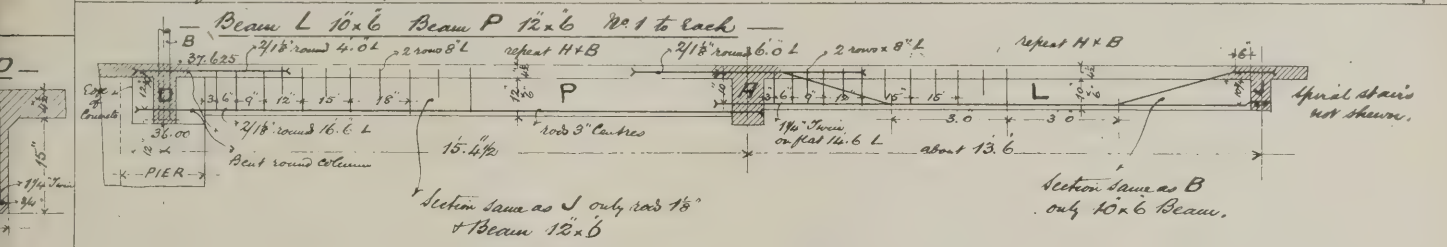 — Beam L 10"x6" Beam P 12"x6" No. 1 to each —
B
37.625
2/1⅛" round 4'.0" L
2 rows 8" L
repeat H & B
2/1⅛" round 6'.0" L
2 rows x 8" L
repeat H & B
6"
D —
Edge of
Concrete
12"
D
3" 6" 9" 12" 15" 18"
12"
6"
4½"
P
10"
H
3" 6" 9" 15" 15"
L
10"
6"
4½"
Spiral stairs
not shewn.
4½"
36.00
2/1⅛" round 16.6 L
rods 3" Centres
1¼" Twin
on flat 14.6 L
3.0 3.0
12"
Bent round column
15'.4½"
about 13.6
15"
PIER
1¼" Twin
3/4"
Section same as J only rods 1⅛"
& Beam 12"x6"
Section same as B
only 10"x6" Beam.